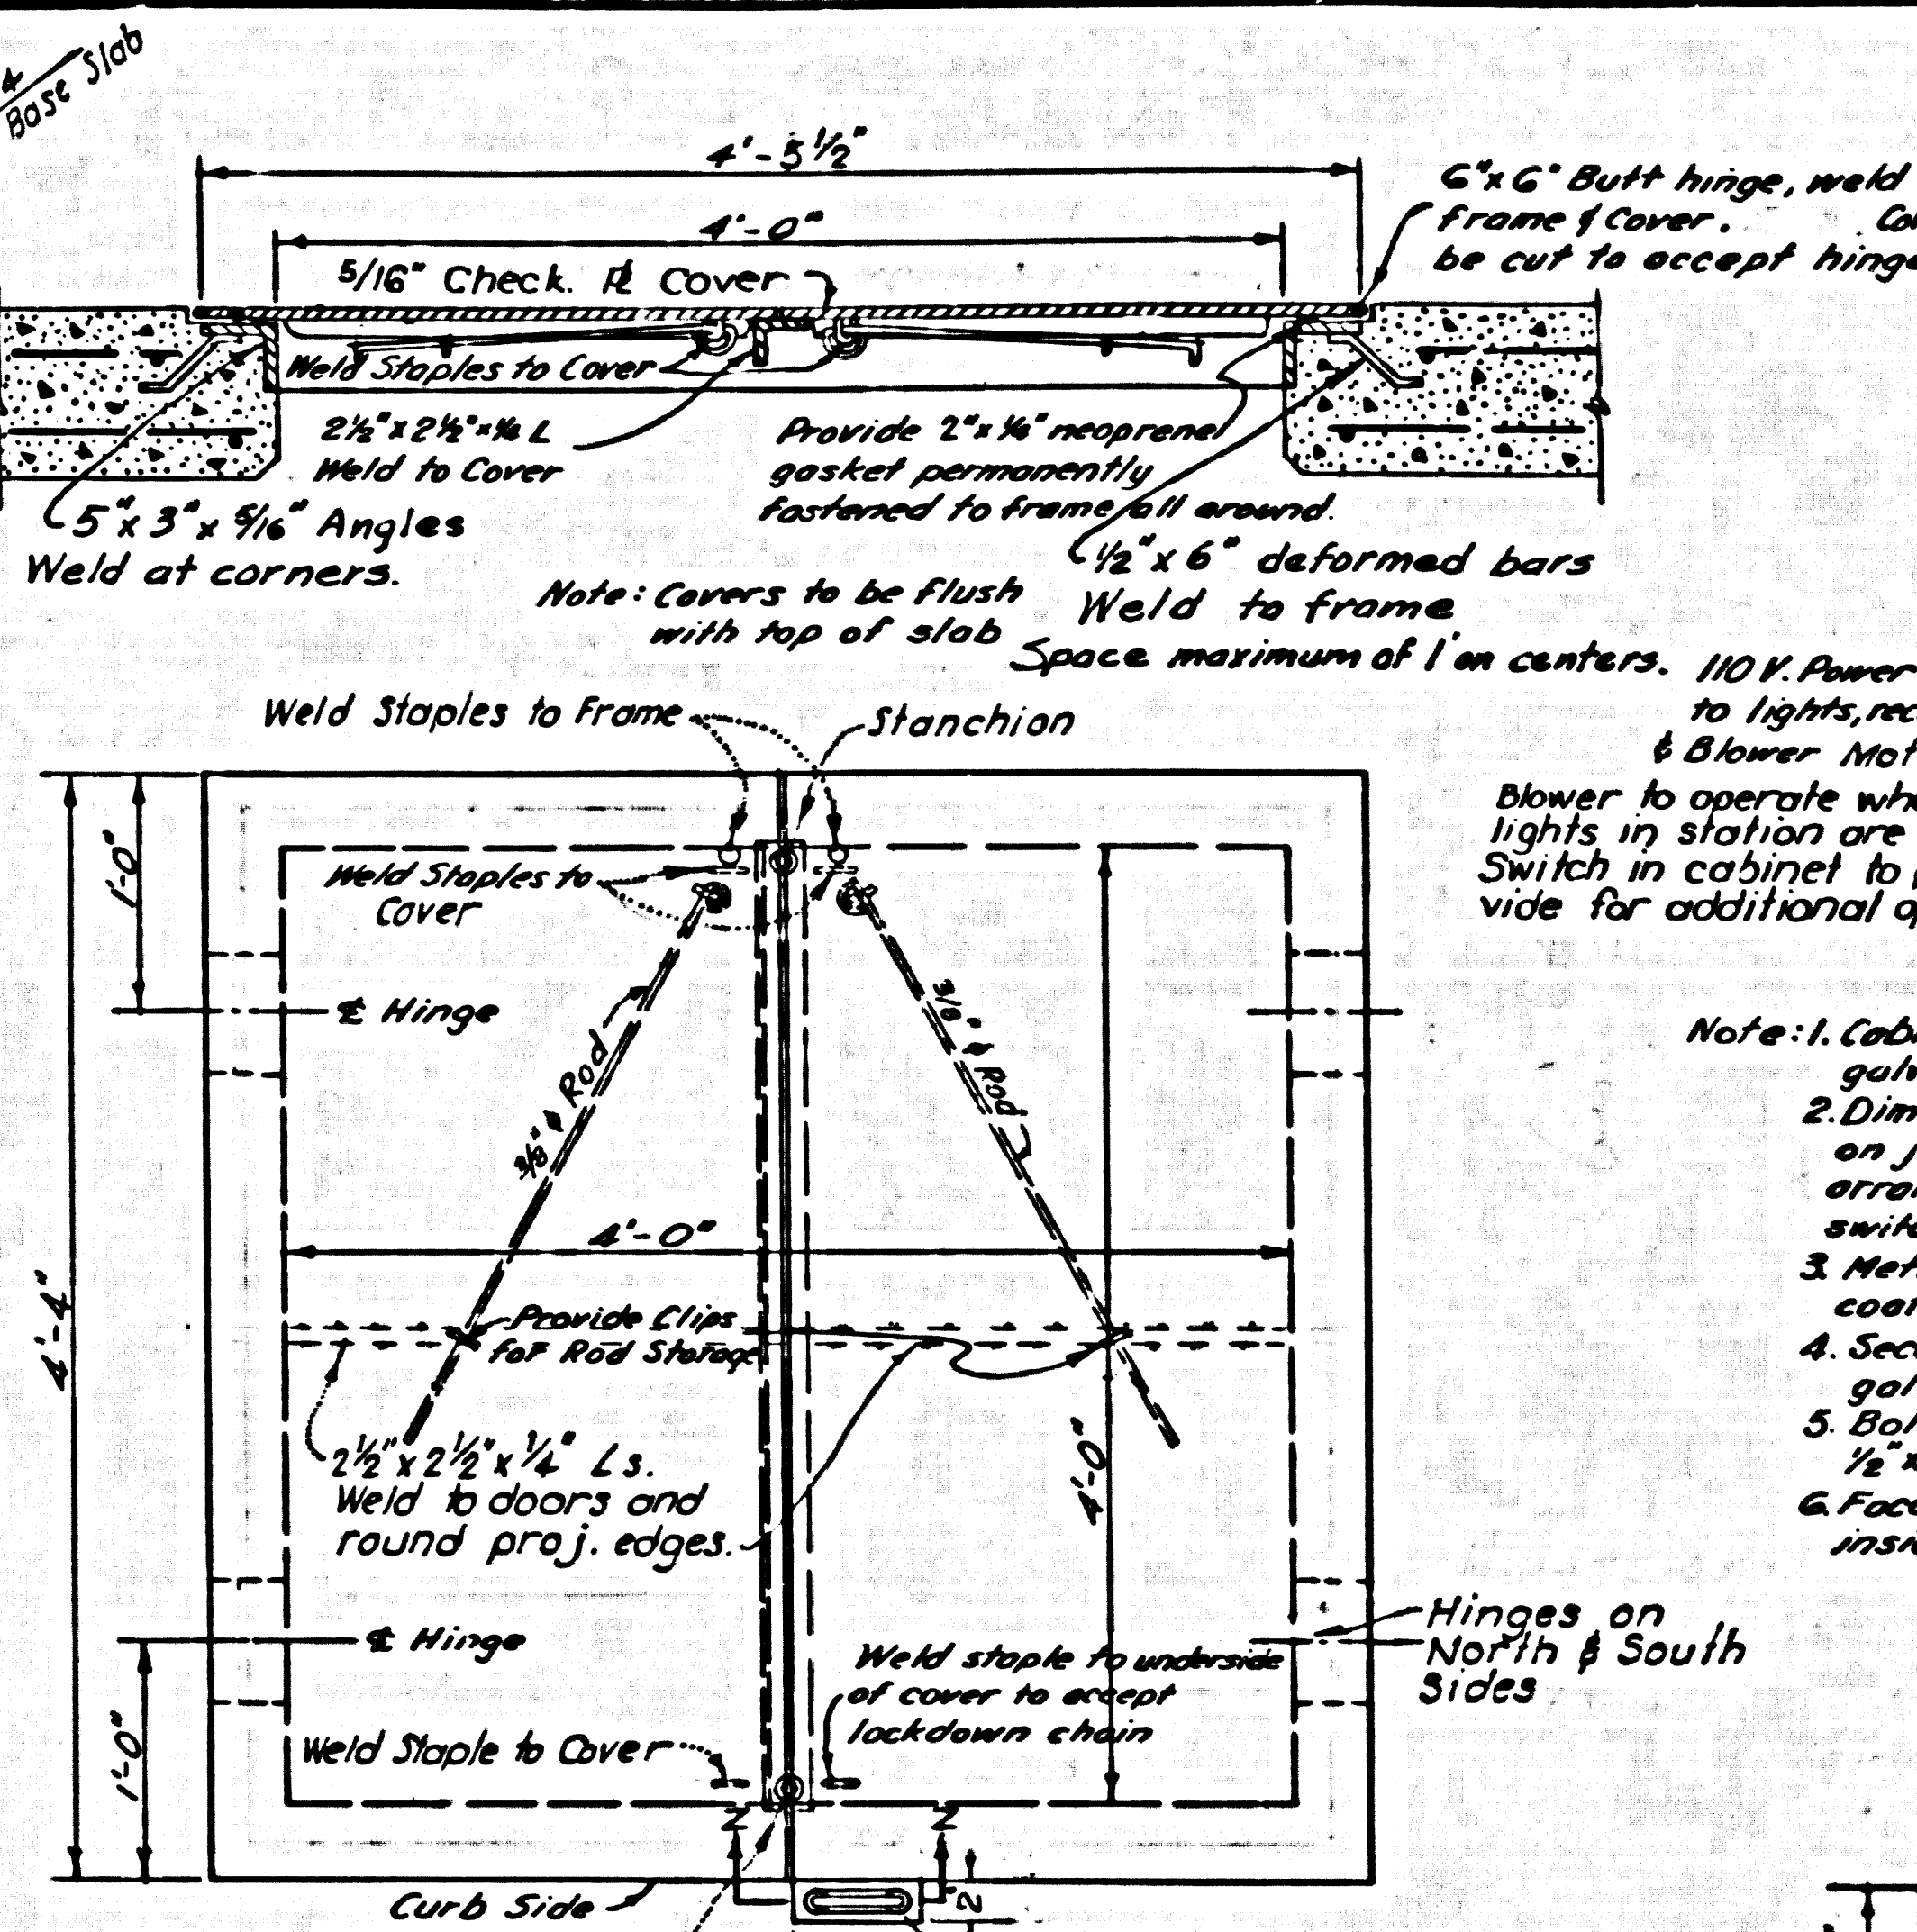 4
Base Slab
4'-5 1/2"
4'-0"
5/16" Check. PL Cover
6"x 6" Butt hinge, weld
frame & Cover.
be cut to accept
Weld Staples to Cover
2½"x 2½"x ¼ L
Weld to Cover
Provide 2"x ¼" neoprene
gasket permanently
fastened to frame all around.
5"x 3"x 5/16" Angles
Weld at corners.
½"x 6" deformed bars
Weld to frame
Space maximum of 1' on centers.
Note: Covers to be flush
with top of slab
110 V. Power
to lights,
& Blower
Blower to operate
lights in station are
Switch in cabinet to
vide for additional
Weld Staples to Frame
Stanchion
1'-0"
Weld Staples to
Cover
℄ Hinge
3/8" ϕ Rod
3/8" ϕ Rod
4'-0"
4'-4"
Provide Clips
for Rod Storage
2½"x 2½"x ¼" Ls.
Weld to doors and
round proj. edges.
4'-0"
℄ Hinge
Weld staple to underside
of cover to accept
lockdown chain
Hinges on
North & South
Sides
1'-0"
Weld Staple to Cover
N N
2"
Curb Side
Note: 1.
2.
on
3.
4.
5.
½"x
6.